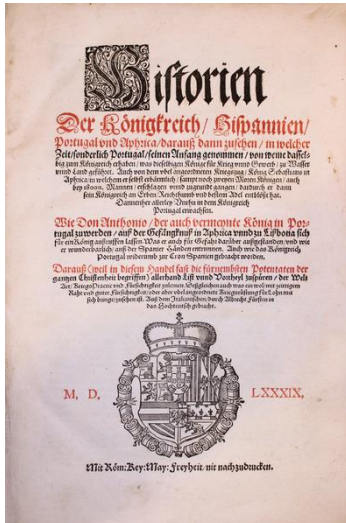 Historien
Der Königkreich/ Hispannien/
Portugal vnd Aphrica/ darauß dann zusehen/ in welcher
Zeit/ sonderlich Portugal/ seinen Anfang genommen/ von weme dassel-
big zum Königreich erhaben/ was dieselbigen Könige für Krieg vnnd Gewerb/ zu Wasser
vnnd Land geführet. Auch von dem vbel angeordneten Kriegszug/ König Sebastians in
Aphrica in welchem er selbst erbärmlich/ sampt noch zweyen Moren Königen/ auch
bey 18000. Mannen/ erschlagen vnnd zugrundt gangen/ dardurch er dann
sein Königreich an Erben/ Reichthumb vnd besten Adel entblößt hat.
Dannenher allerley Vnruhe in dem Königreich
Portugal erwachsen.
Wie Don Anthonio/ der auch vermeynte König in Por-
tugal zuwerden/ auß der Gefängknuß in Aphrica vnnd zu Lißbona sich
für ein König außruffen lassen Was er auch für Gefahr darüber außgestanden/ vnd wie
er wunderbarlich/ auß der Spanier Händen entrunnen. Auch wie das Königreich
Portugal widerumb zur Cron Spanien gebracht worden.
Darauß (weil in diesem Handel fast die fürnembsten Potentaten der
gantzen Christenheit begriffen) allerhand List vnnd Vortheyl zuspüren/ der Welt
Art/
Rath vnd guter Fürsichtigkeit/ oder aber vbel angeordnete Kriegßrüstung für Lohn mit
sich bringe/ zusehen ist. Auß dem Italienischen/ durch Albrecht Fürsten in
das Hochteutsch gebracht.
M. D. LXXXIX.
Mit Röm: Key: May: Freyheit/ nit nachzudrucken.